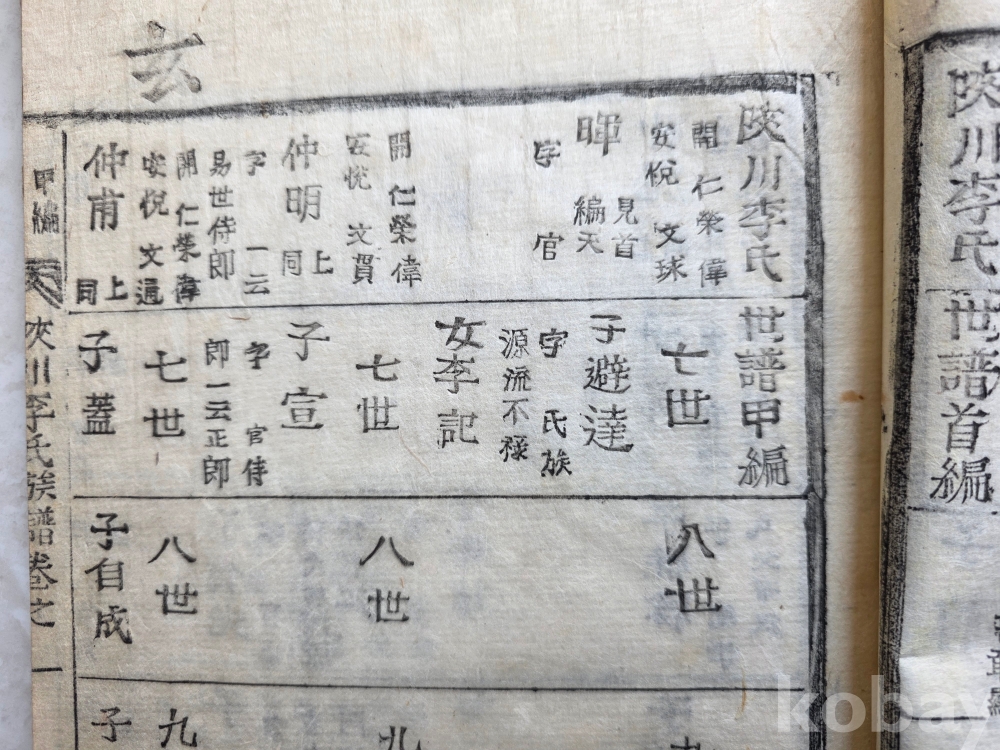 陜川李氏
世譜首編
玄
陜川李氏
世譜甲編
開仁榮偉
安悅文球
暉
見首
編天
字官
開仁榮偉
安悅文質
仲明
上
同
字一云
易世侍郎
開仁榮偉
安悅文通
仲甫
上
同
七世
子避達
字氏族
源流不祿
女李記
七世
子宣
字官侍
郎一云正郎
七世
子蓋
八世
八世
八世
子自成
九
子
甲編
天
陜川李氏族譜卷之一
kobay